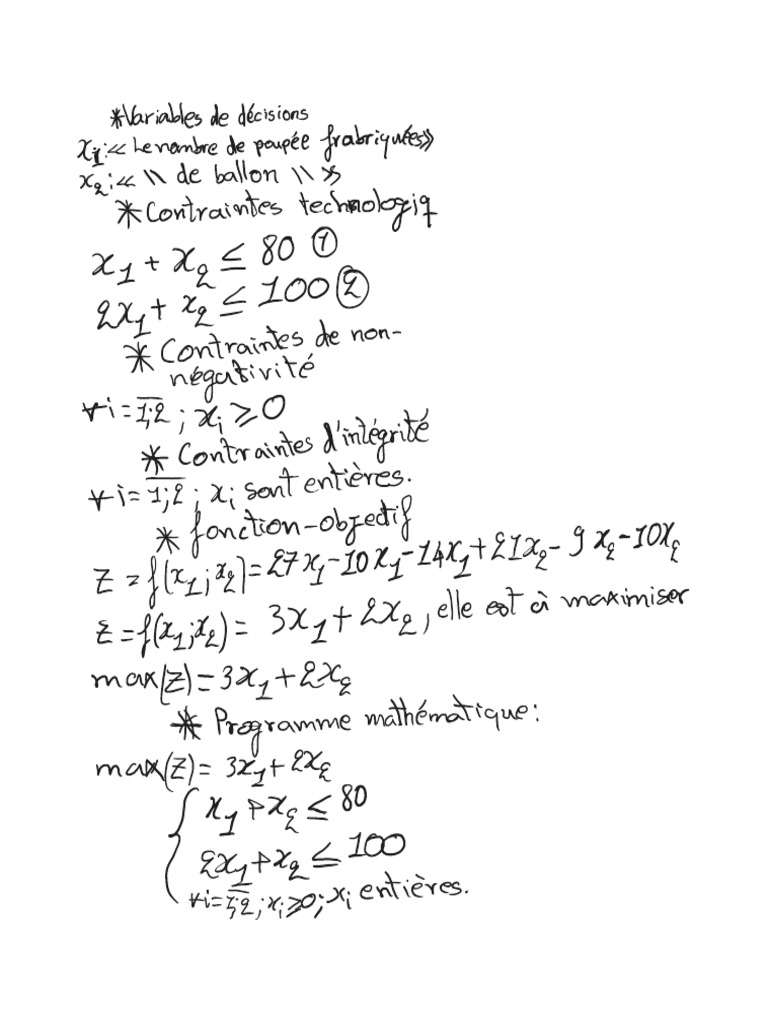 *Variables de décisions
x₁:<< Le nombre de poupée frabriquées>>
x₂:<< \\ de ballon \\ >>
* Contraintes technologiq
x₁ + x₂ ≤ 80 ①
2x₁ + x₂ ≤ 100 ②
* Contraintes de non-
négativité
∀i = 1;2 ; xᵢ ≥ 0
* Contraintes d'intégrité
∀i = 1;2 ; xᵢ sont entières.
* fonction-objectif
Z = f(x₁;x₂) = 27x₁-10x₁-14x₁+21x₂-9x₂-10x₂
Z = f(x₁;x₂) = 3x₁ + 2x₂, elle est à maximiser
max(Z) = 3x₁ + 2x₂
* Programme mathématique:
max(Z) = 3x₁ + 2x₂
{ x₁ + x₂ ≤ 80
2x₁ + x₂ ≤ 100
∀i = 1;2 ; xᵢ ≥ 0 ; xᵢ entières.